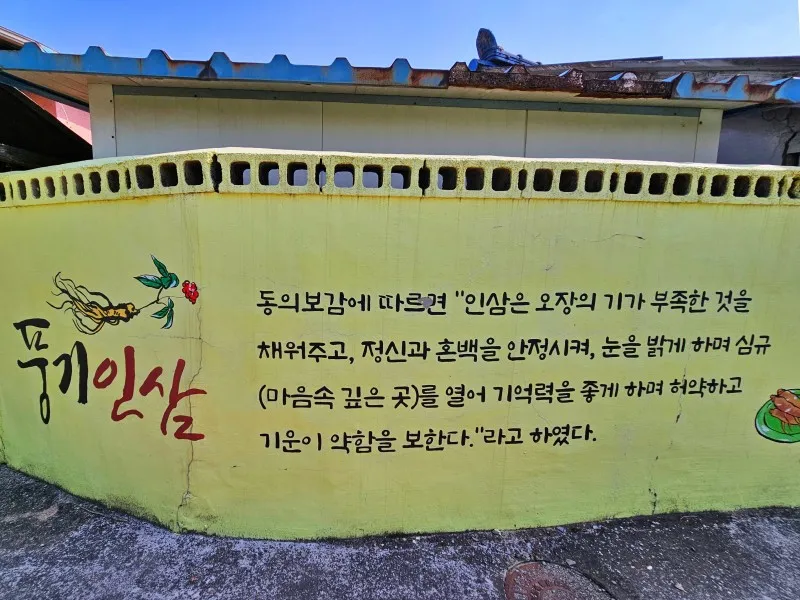 풍기인삼
동의보감에 따르면 "인삼은 오장의 기가 부족한 것을
채워주고, 정신과 혼백을 안정시켜, 눈을 밝게 하며 심규
(마음속 깊은 곳)를 열어 기억력을 좋게 하며 허약하고
기운이 약함을 보한다."라고 하였다.